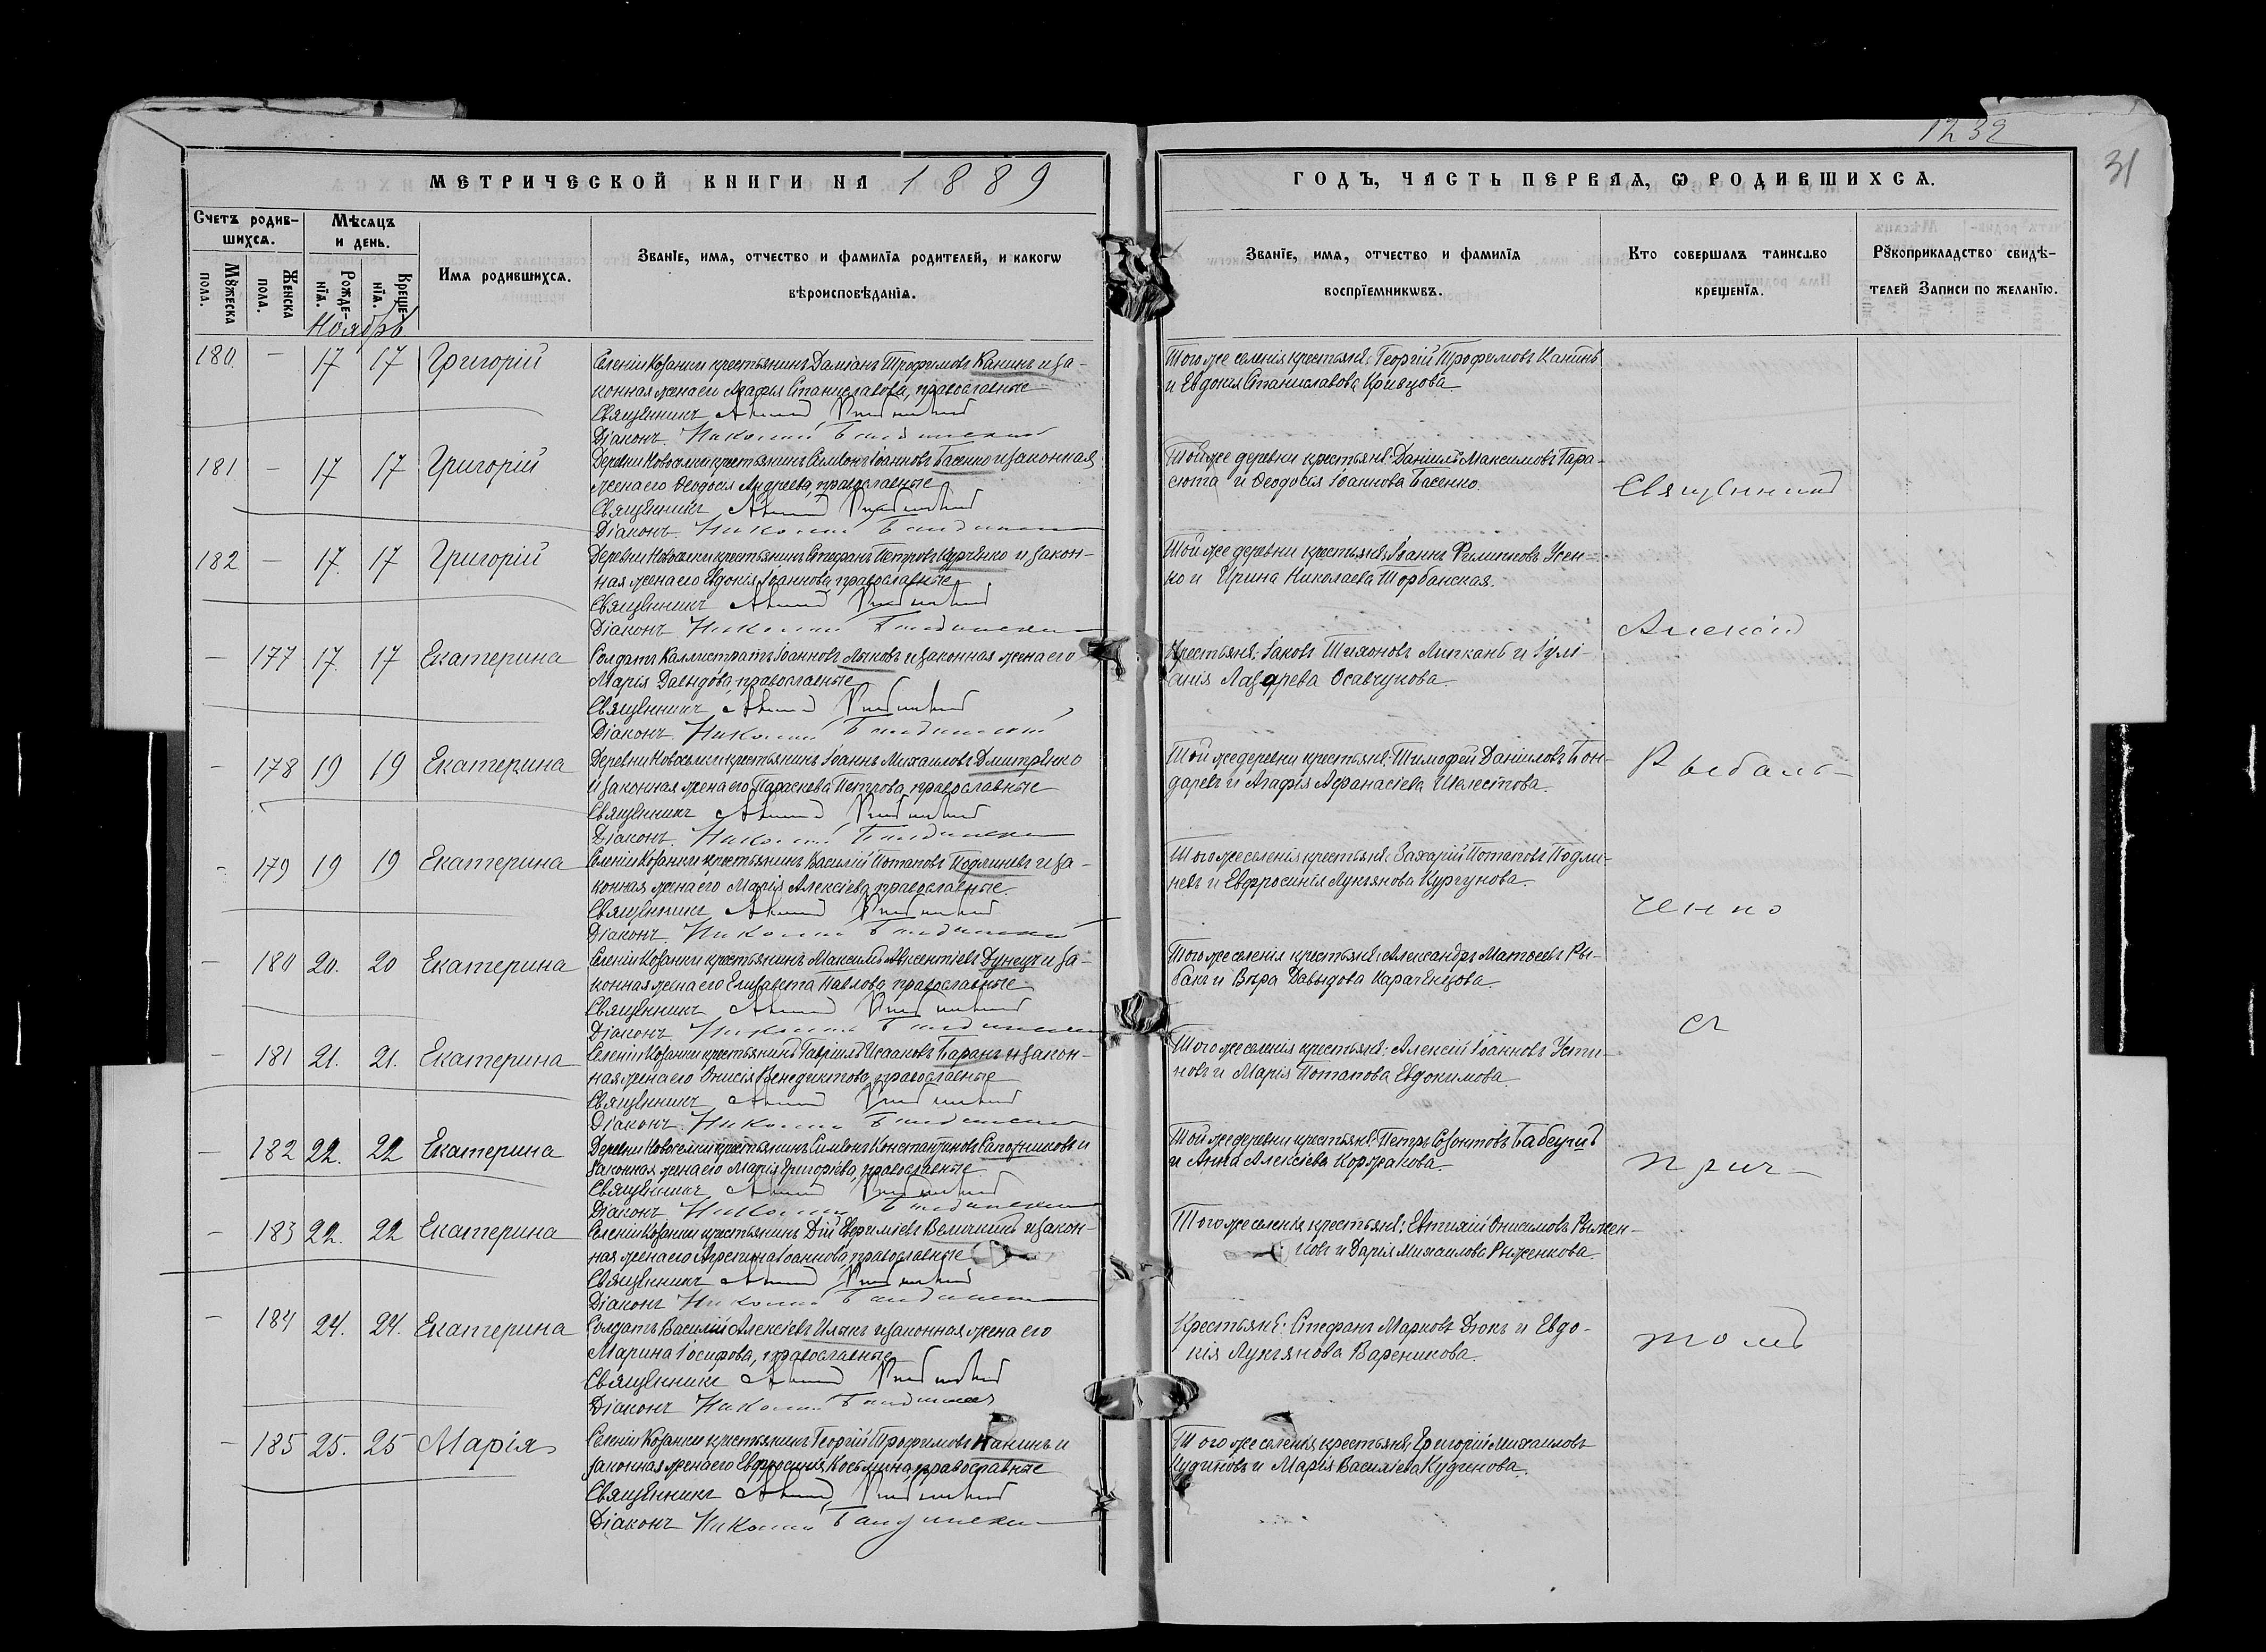 1232
31
МЕТРИЧЕСКОЙ КНИГИ НА 1889
ГОДЪ, ЧАСТЬ ПЕРВАЯ, Ѡ РОДИВШИХСѦ.
Счетъ родив-
шихсѧ.
Мѣсяцъ
и день.
Мꙋжеска
пола.
Женска
пола.
Рожде-
нїѧ.
Креще-
нїѧ.
Имѧ родившихсѧ.
Званїе, имѧ, отчество и фамилїѧ родителей, и какогѡ
вѣроисповѣданїѧ.
Званїе, имѧ, отчество и фамилїѧ
воспрїемникѡвъ.
Кто совершалъ таинство
крещенїѧ.
Рꙋкоприкладство свидѣ-
телей записи по желанїю.
Ноябрь
180. – 17 17 Григорій
Селенія Козанки крестьянинъ Даміанъ Трофимовъ Канинъ и за-
конная жена его Агафія Станиславова, православные
Священникъ
Діаконъ Николай
Того же селенія крестьяне: Георгій Трофимовъ Канинъ
и Евдокія Станиславова Кривцова
181 – 17 17 Григорій
Деревни Новоселки крестьянинъ Симеонъ Іоанновъ Басенко и законная
жена его Ѳеодосія Андреева, православные
Священникъ
Діаконъ Николай
Той же деревни крестьяне: Даніилъ Максимовъ Тара-
сюта и Ѳеодосія Іоаннова Басенко.
182 – 17. 17 Григорій
Деревни Новоселки крестьянинъ Стефанъ Петровъ Курченко и закон-
ная жена его Евдокія Іоаннова, православные
Священникъ
Діаконъ Николай
Той же деревни крестьяне: Іоаннъ Филипповъ Усен-
ко и Ирина Николаева Торбанская.
– 177 17. 17 Екатерина
Солдатъ Каллистратъ Іоанновъ Лыковъ и законная жена его
Марія Давыдова, православные
Священникъ
Діаконъ Николай
Крестьяне: Іаковъ Тихоновъ Липканъ и Іулі-
анія Лазарева Осавчукова.
– 178 19 19 Екатерина
Деревни Новоселки крестьянинъ Іоаннъ Михаиловъ Дмитренко
и законная жена его Параскева Петрова, православные
Священникъ
Діаконъ Николай
Той же деревни крестьяне: Тимофей Даніиловъ Бон-
даревъ и Агафія Афанасіева Шелестова.
– 179 19 19 Екатерина
Селенія Козанки крестьянинъ Василій Потаповъ Подлиневъ и за-
конная жена его Марія Алексіева, православные.
Священникъ
Діаконъ Николай
Того же селенія крестьяне: Захарій Потаповъ Подли-
невъ и Евфросинія Лукьянова Кургунова.
– 180 20. 20 Екатерина
Селенія Козанки крестьянинъ Максимъ Авксентіевъ Дунецъ и за-
конная жена его Елизавета Павлова, православные
Священникъ
Діаконъ Николай
Того же селенія крестьяне: Александръ Матѳеевъ Ры-
бакъ и Вѣра Давыдова Караченцова.
– 181 21. 21. Екатерина
Селенія Козанки крестьянинъ Гавріилъ Исааковъ Баранъ и закон-
ная жена его Онисія Венедиктова, православные
Священникъ
Діаконъ Николай
Того же селенія крестьяне: Алексій Іоанновъ Усти-
новъ и Марія Потапова Евдокимова.
– 182 22. 22 Екатерина
Деревни Новоселки крестьянинъ Симеонъ Константиновъ Сапожниковъ и
законная жена его Марія Григоріева, православные
Священникъ
Діаконъ Николай
Той же деревни крестьяне: Петръ Созонтовъ
и Анна Алексіева Коржакова.
– 183 22. 22 Екатерина
Селенія Козанки крестьянинъ Дій Ефиміевъ Величкинъ и закон-
ная жена его Агрепина Іоаннова, православные
Священникъ
Діаконъ Николай
Того же селенія крестьяне: Евтихій Онисимовъ Рыжен-
ковъ и Дарія Михаилова Рыженкова.
– 184 24. 24. Екатерина
Солдатъ Василій Алексіевъ Илыкъ и законная жена его
Марина Іосифова, православные
Священникъ
Діаконъ Николай
Крестьяне: Стефанъ Марковъ Дюкъ и Евдо-
кія Лукьянова Вареникова.
– 185 25. 25 Марія
Селенія Козанки крестьянинъ Георгій Трофимовъ Канинъ и
законная жена его Евфросинія Косьмина, православные
Священникъ
Діаконъ Николай
Того же селенія крестьяне: Григорій Михаиловъ
Кудиновъ и Марія Василіева Кудинова.
Священникъ
Алексій
Рыбаль-
ченко
съ
прич-
томъ